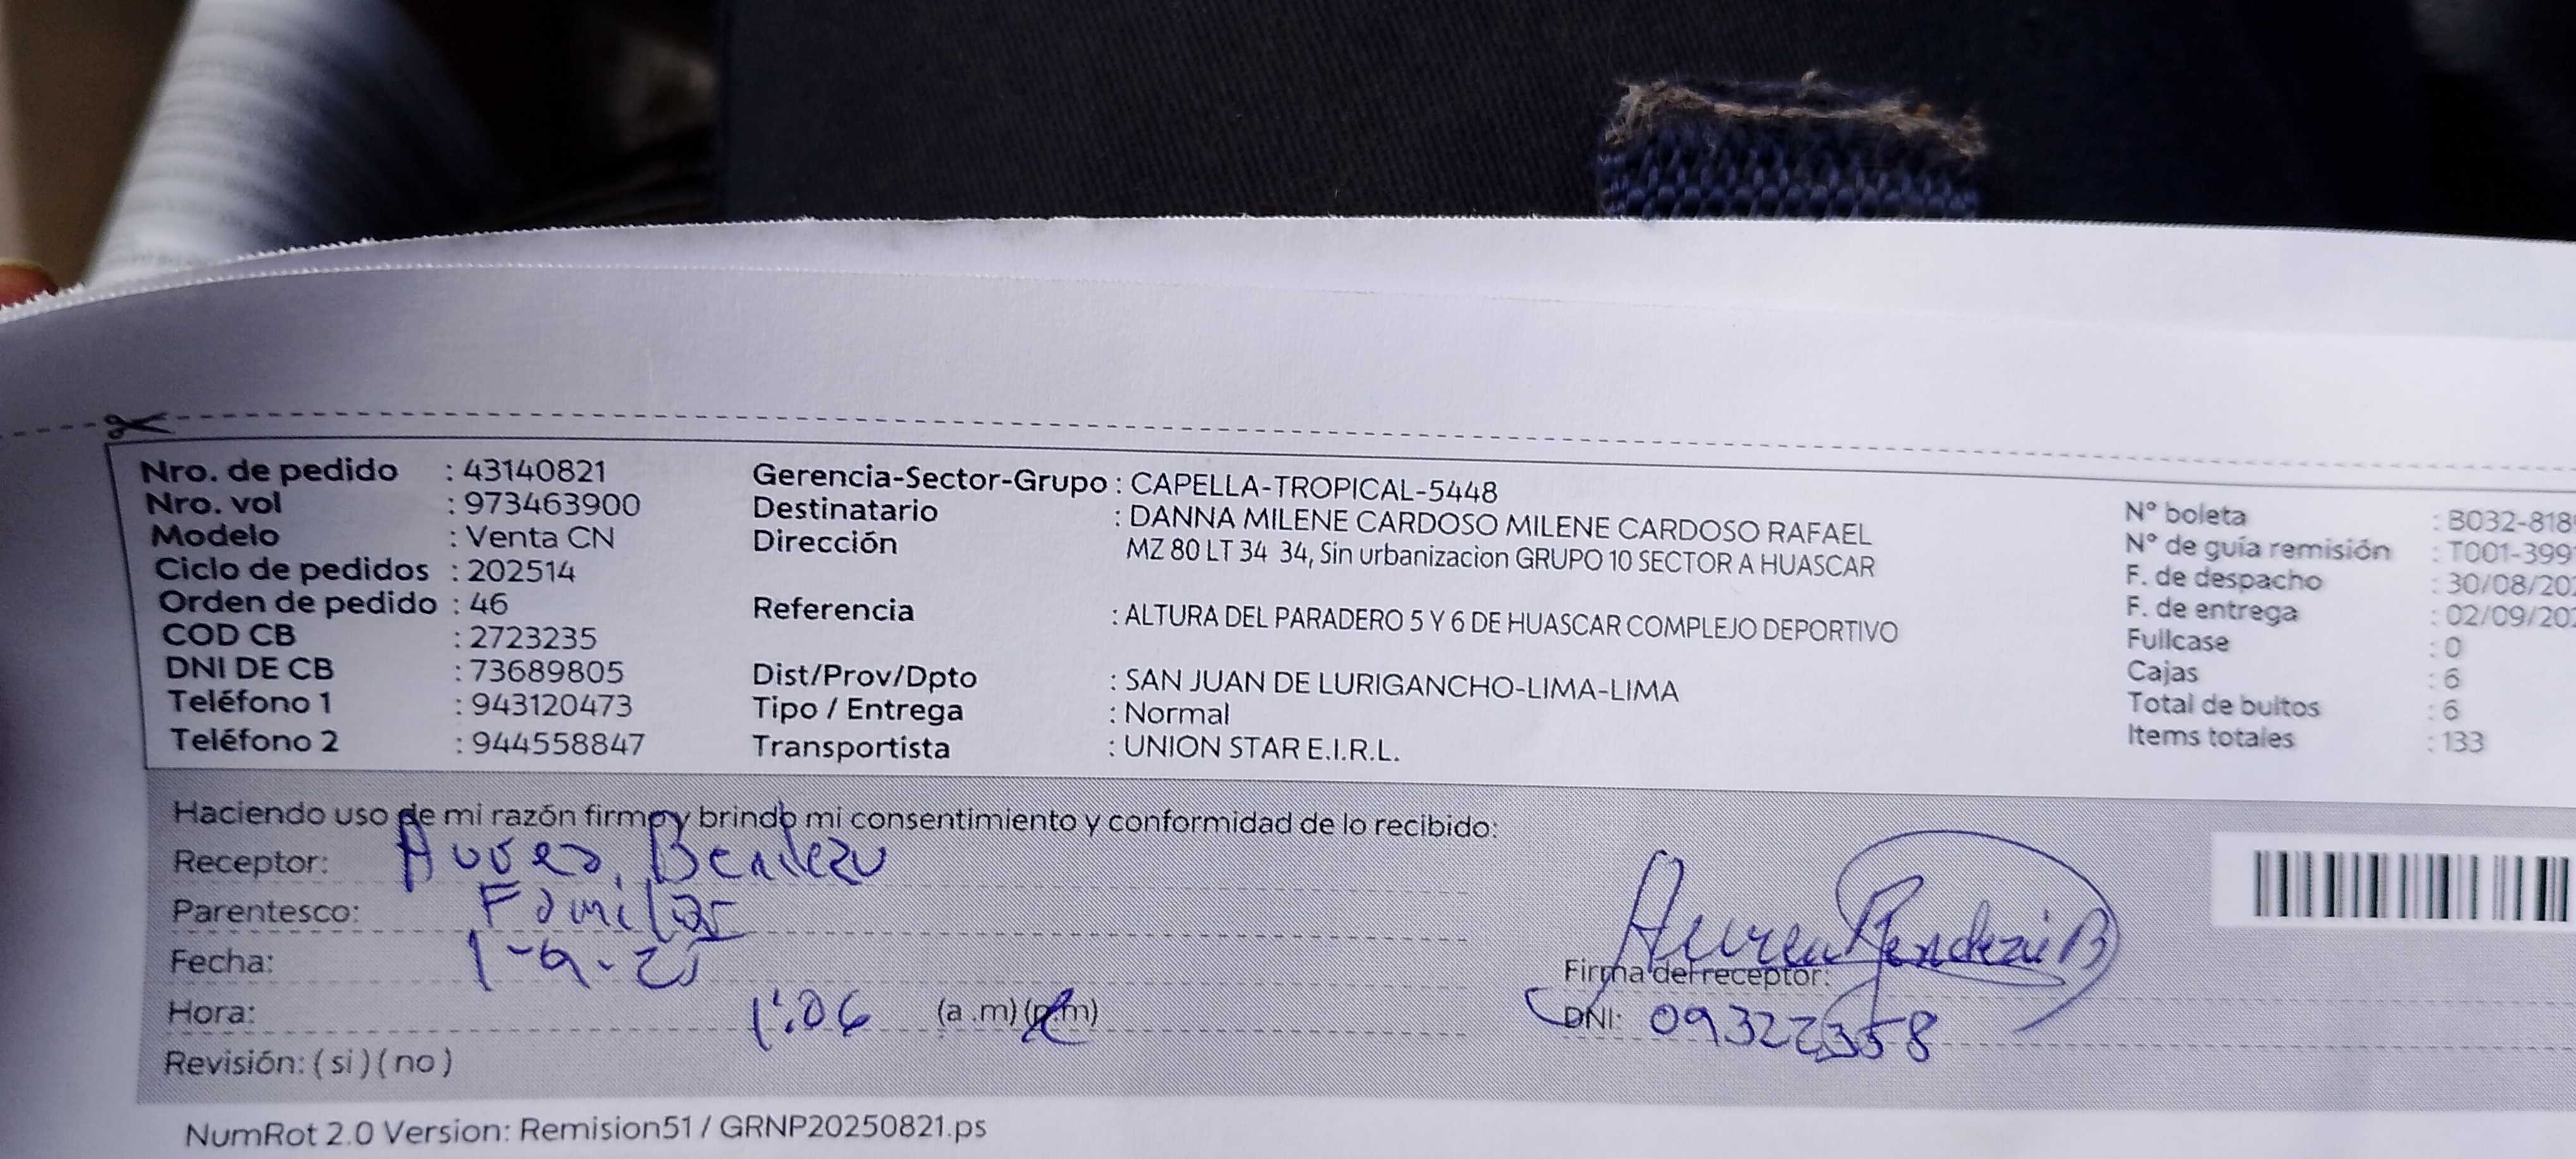 Nro. de pedido : 43140821
Nro. vol : 973463900
Modelo : Venta CN
Ciclo de pedidos : 202514
Orden de pedido : 46
COD CB : 2723235
DNI DE CB : 73689805
Teléfono 1 : 943120473
Teléfono 2 : 944558847
Gerencia-Sector-Grupo : CAPELLA-TROPICAL-5448
Destinatario : DANNA MILENE CARDOSO MILENE CARDOSO RAFAEL
Dirección MZ 80 LT 34 34, Sin urbanizacion GRUPO 10 SECTOR A HUASCAR
Referencia : ALTURA DEL PARADERO 5 Y 6 DE HUASCAR COMPLEJO DEPORTIVO
Dist/Prov/Dpto : SAN JUAN DE LURIGANCHO-LIMA-LIMA
Tipo / Entrega : Normal
Transportista : UNION STAR E.I.R.L.
N° boleta : B032-818
N° de guía remisión : T001-399
F. de despacho : 30/08/20
F. de entrega : 02/09/20
Fullcase : 0
Cajas : 6
Total de bultos : 6
Items totales : 133
Haciendo uso de mi razón firmo y brindo mi consentimiento y conformidad de lo recibido:
Receptor: Aurea Bendezu
Parentesco: Familiar
Fecha: 1-9-25
Hora: 1:06 (a .m) (p.m)
Revisión: ( si ) ( no )
Aurea Bendezu B
Firma del receptor:
DNI: 09322358
NumRot 2.0 Version: Remision51 / GRNP20250821.ps